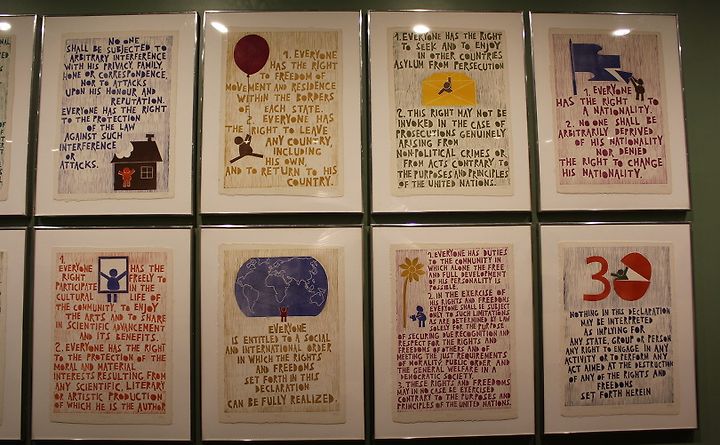 NO ONE
SHALL BE SUBJECTED TO
ARBITRARY INTERFERENCE
WITH HIS PRIVACY, FAMILY,
HOME OR CORRESPONDENCE,
NOR TO ATTACKS
UPON HIS HONOUR AND
REPUTATION.
EVERYONE HAS THE RIGHT
TO THE PROTECTION
OF THE LAW
AGAINST SUCH
INTERFERENCE
OR
ATTACKS.
1. EVERYONE
HAS THE RIGHT
TO FREEDOM OF
MOVEMENT AND RESIDENCE
WITHIN THE BORDERS
OF EACH STATE.
2. EVERYONE HAS
THE RIGHT TO LEAVE
ANY COUNTRY,
INCLUDING
HIS OWN,
AND TO RETURN TO HIS
COUNTRY.
1. EVERYONE HAS THE RIGHT
TO SEEK AND TO ENJOY
IN OTHER COUNTRIES
ASYLUM FROM PERSECUTION
2. THIS RIGHT MAY NOT BE
INVOKED IN THE CASE OF
PROSECUTIONS GENUINELY
ARISING FROM
NON-POLITICAL CRIMES OR
FROM ACTS CONTRARY TO
THE PURPOSES AND PRINCIPLES
OF THE UNITED NATIONS.
1. EVERYONE
HAS THE RIGHT TO
A NATIONALITY.
2. NO ONE SHALL BE
ARBITRARILY DEPRIVED
OF HIS NATIONALITY
NOR DENIED
THE RIGHT TO CHANGE
HIS NATIONALITY.
1.
EVERYONE HAS THE
RIGHT FREELY TO
PARTICIPATE IN THE
CULTURAL LIFE OF
THE COMMUNITY, TO ENJOY
THE ARTS AND TO SHARE
IN SCIENTIFIC ADVANCEMENT
AND ITS BENEFITS.
2. EVERYONE HAS THE RIGHT
TO THE PROTECTION OF THE
MORAL AND MATERIAL
INTERESTS RESULTING FROM
ANY SCIENTIFIC, LITERARY
OR ARTISTIC PRODUCTION
OF WHICH HE IS THE AUTHOR
EVERYONE
IS ENTITLED TO A SOCIAL
AND INTERNATIONAL ORDER
IN WHICH THE RIGHTS
AND FREEDOMS
SET FORTH IN THIS
DECLARATION
CAN BE FULLY REALIZED.
1. EVERYONE HAS DUTIES
TO THE COMMUNITY IN
WHICH ALONE THE FREE
AND FULL DEVELOPMENT
OF HIS PERSONALITY IS
POSSIBLE.
2. IN THE EXERCISE OF
HIS RIGHTS AND FREEDOMS
EVERYONE SHALL BE SUBJECT
ONLY TO SUCH LIMITATIONS
AS ARE DETERMINED BY LAW
SOLELY FOR THE PURPOSE
OF SECURING DUE RECOGNITION AND
RESPECT FOR THE RIGHTS AND
FREEDOMS OF OTHERS AND OF
MEETING THE JUST REQUIREMENTS
OF MORALITY, PUBLIC ORDER AND
THE GENERAL WELFARE IN A
DEMOCRATIC SOCIETY.
3. THESE RIGHTS AND FREEDOMS
MAY IN NO CASE BE EXERCISED
CONTRARY TO THE PURPOSES AND
PRINCIPLES OF THE UNITED NATIONS.
30
NOTHING IN THIS DECLARATION
MAY BE INTERPRETED
AS IMPLYING FOR
ANY STATE, GROUP OR PERSON
ANY RIGHT TO ENGAGE IN ANY
ACTIVITY OR TO PERFORM ANY
ACT AIMED AT THE DESTRUCTION
OF ANY OF THE RIGHTS AND
FREEDOMS
SET FORTH HEREIN